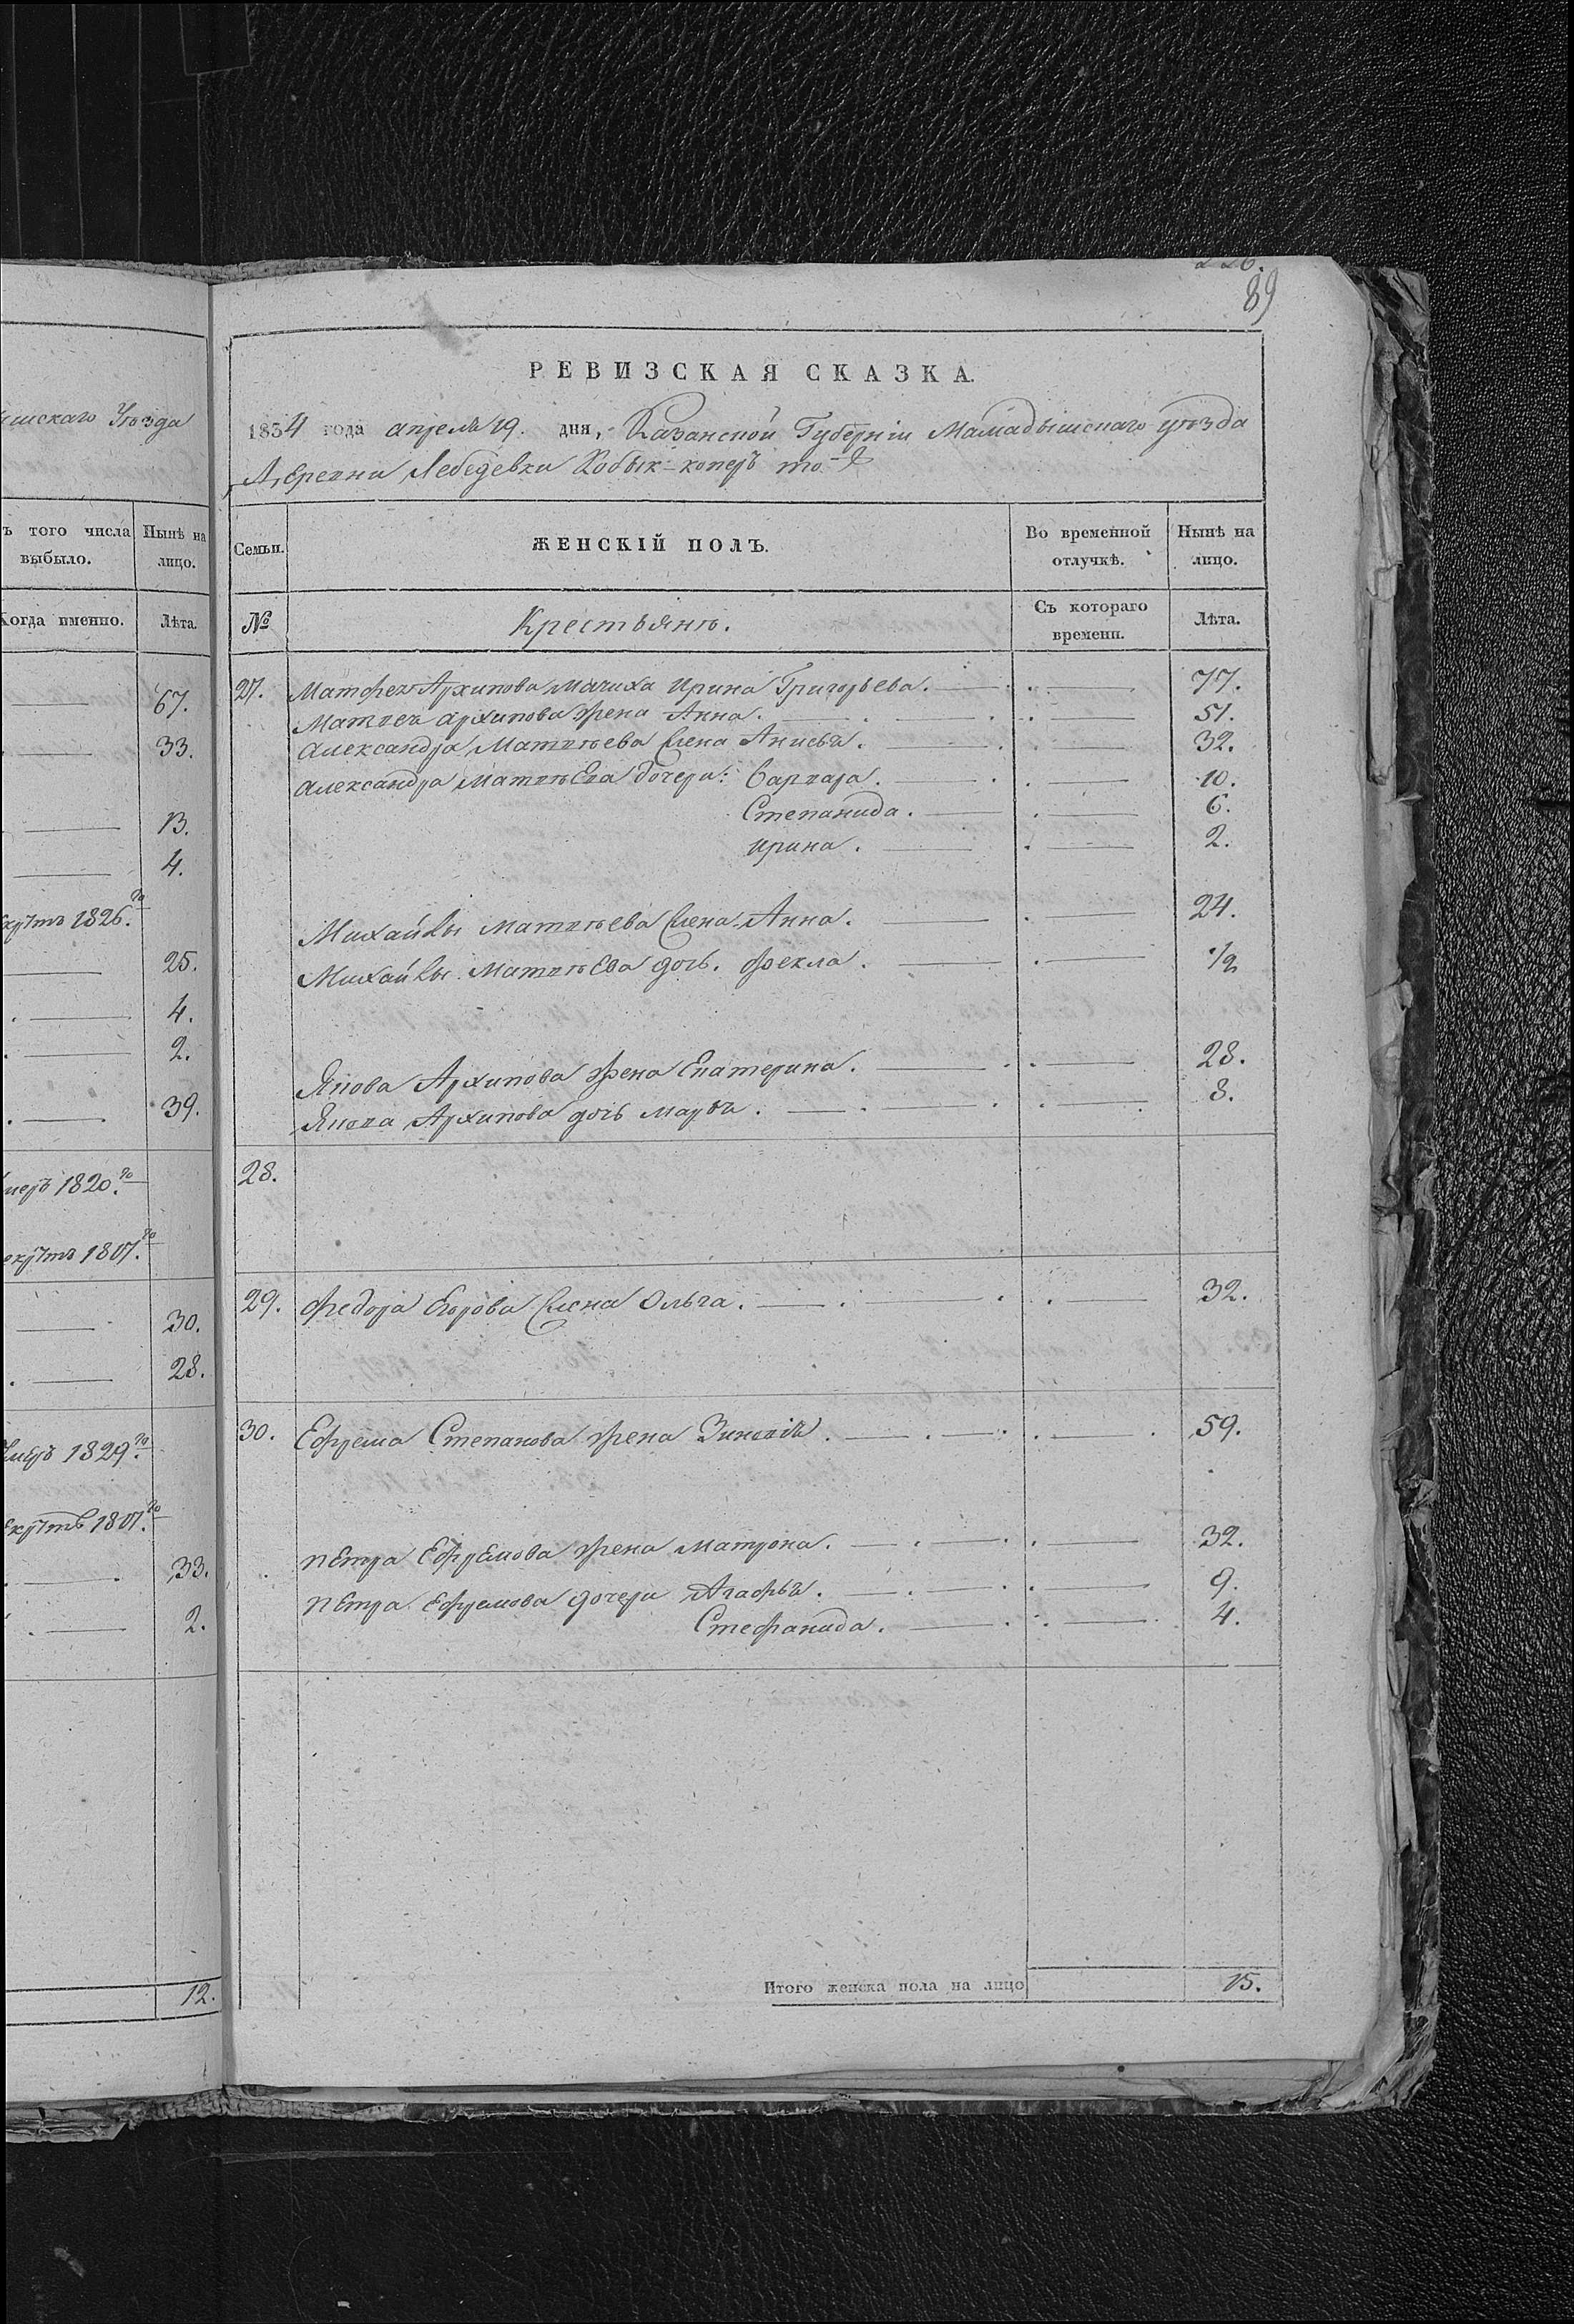 226.
89
РЕВИЗСКАЯ СКАЗКА.
1834 года апреля 19. дня, Казанской Губерніи Мамадышскаго уѣзда
Деревни Лебедевки Кобык-коперъ то-ж
Семьи.
ЖЕНСКІЙ ПОЛЪ.
Во временной отлучкѣ.
Нынѣ на лицо.
№
Крестьянъ.
Съ котораго времени.
Лѣта.
27. Матфея Архипова мачиха Ирина Григорьева. 77.
Матвея Архипова жена Анна. 51.
Александра Матвѣева жена Анисья. 32.
Александра Матвѣева дочери: Варвара. 10.
Степанида. 6.
Ирина. 2.
Михайлы Матвѣева жена Анна. 24.
Михайлы Матвѣева дочь. Фекла. 1/2
Якова Архипова жена Екатерина. 28.
Якова Архипова дочь Марья. 8.
28.
29. Федора Егорова жена Ольга. 32.
30. Ефрема Степанова жена Зиновія. 59.
Петра Ефремова жена Матрона. 32.
Петра Ефремова дочери Агафья. 9.
Стефанида. 4.
Итого женска пола на лицо 15.
ышскаго Уѣзда
ъ того числа выбыло.
Нынѣ на лицо.
Когда именно.
Лѣта.
67.
33.
13.
4.
1826.го
25.
4.
2.
39.
меръ 1820.го
1807.го
30.
28.
Умеръ 1829.го
1807.го
33.
2.
12.